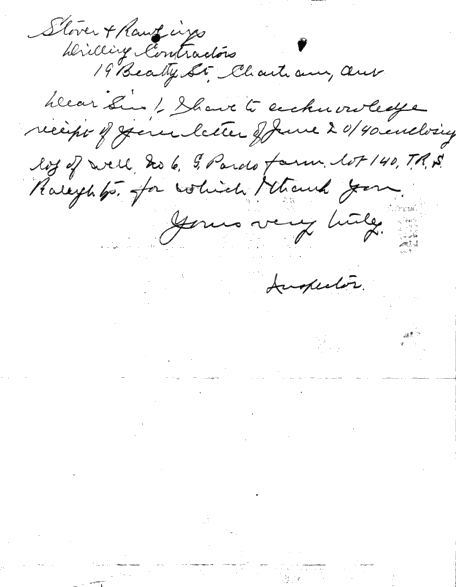 Stover & Rawlings
Drilling Contractors
19 Beatty St. Chatham, Ont
Dear Sir:- I have to acknowledge
receipt of your letter of June 20/40 enclosing
log of well No 6, G Pardo farm. lot 140, T.R.S.
Raleigh tp. for which I thank you.
Yours very truly.
Inspector.